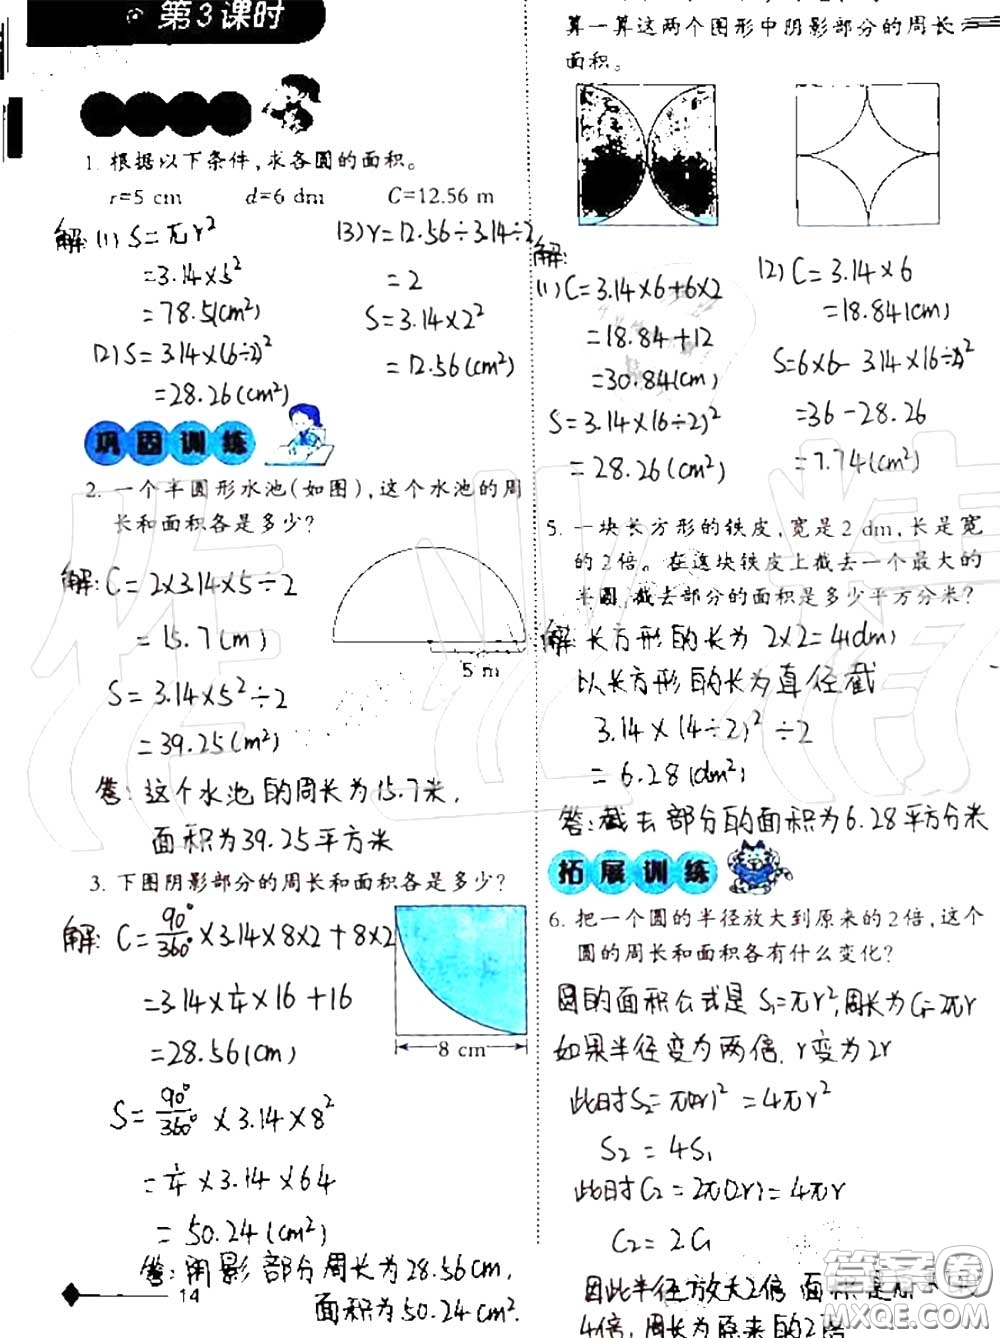 第3课时
1. 根据以下条件,求各圆的面积。
r=5 cm d=6 dm C=12.56 m
解:(1) S=πr²
=3.14×5²
=78.5(cm²)
(2)S=3.14×(6÷2)²
=28.26(cm²)
(3)r=12.56÷3.14÷2
=2
S=3.14×2²
=12.56(cm²)
巩固训练
2. 一个半圆形水池(如图),这个水池的周
长和面积各是多少?
解:C=2×3.14×5÷2
=15.7(m)
S=3.14×5²÷2
=39.25(m²)
5 m
答:这个水池的周长为15.7米,
面积为39.25平方米
3. 下图阴影部分的周长和面积各是多少?
解:C=90°/360°×3.14×8×2+8×2
=3.14×1/4×16+16
=28.56(cm)
S=90°/360°×3.14×8²
=1/4×3.14×64
=50.24(cm²)
8 cm
答:阴影部分周长为28.56cm,
面积为50.24cm².
14
算一算这两个图形中阴影部分的周长
面积。
解:
(1)C=3.14×6+6×2
=18.84+12
=30.84(cm)
S=3.14×(6÷2)²
=28.26(cm²)
(2)C=3.14×6
=18.84(cm)
S=6×6-3.14×(6÷2)²
=36-28.26
=7.74(cm²)
5. 一块长方形的铁皮,宽是2 dm,长是宽
的2倍。在这块铁皮上截去一个最大的
半圆,截去部分的面积是多少平方分米?
解:长方形的长为2×2=4(dm)
以长方形的长为直径截
3.14×(4÷2)²÷2
=6.28(dm²)
答:截去部分的面积为6.28平方分米
拓展训练
6. 把一个圆的半径放大到原来的2倍,这个
圆的周长和面积各有什么变化?
圆的面积公式是S₁=πr²,周长为C₁=2πr
如果半径变为两倍,r变为2r
此时S₂=π(2r)²=4πr²
S₂=4S₁
此时C₂=2π(2r)=4πr
C₂=2C₁
因此半径放大2倍 面积是原
4倍,周长为原来的2倍
作业精
答案圈
MXQE.COM